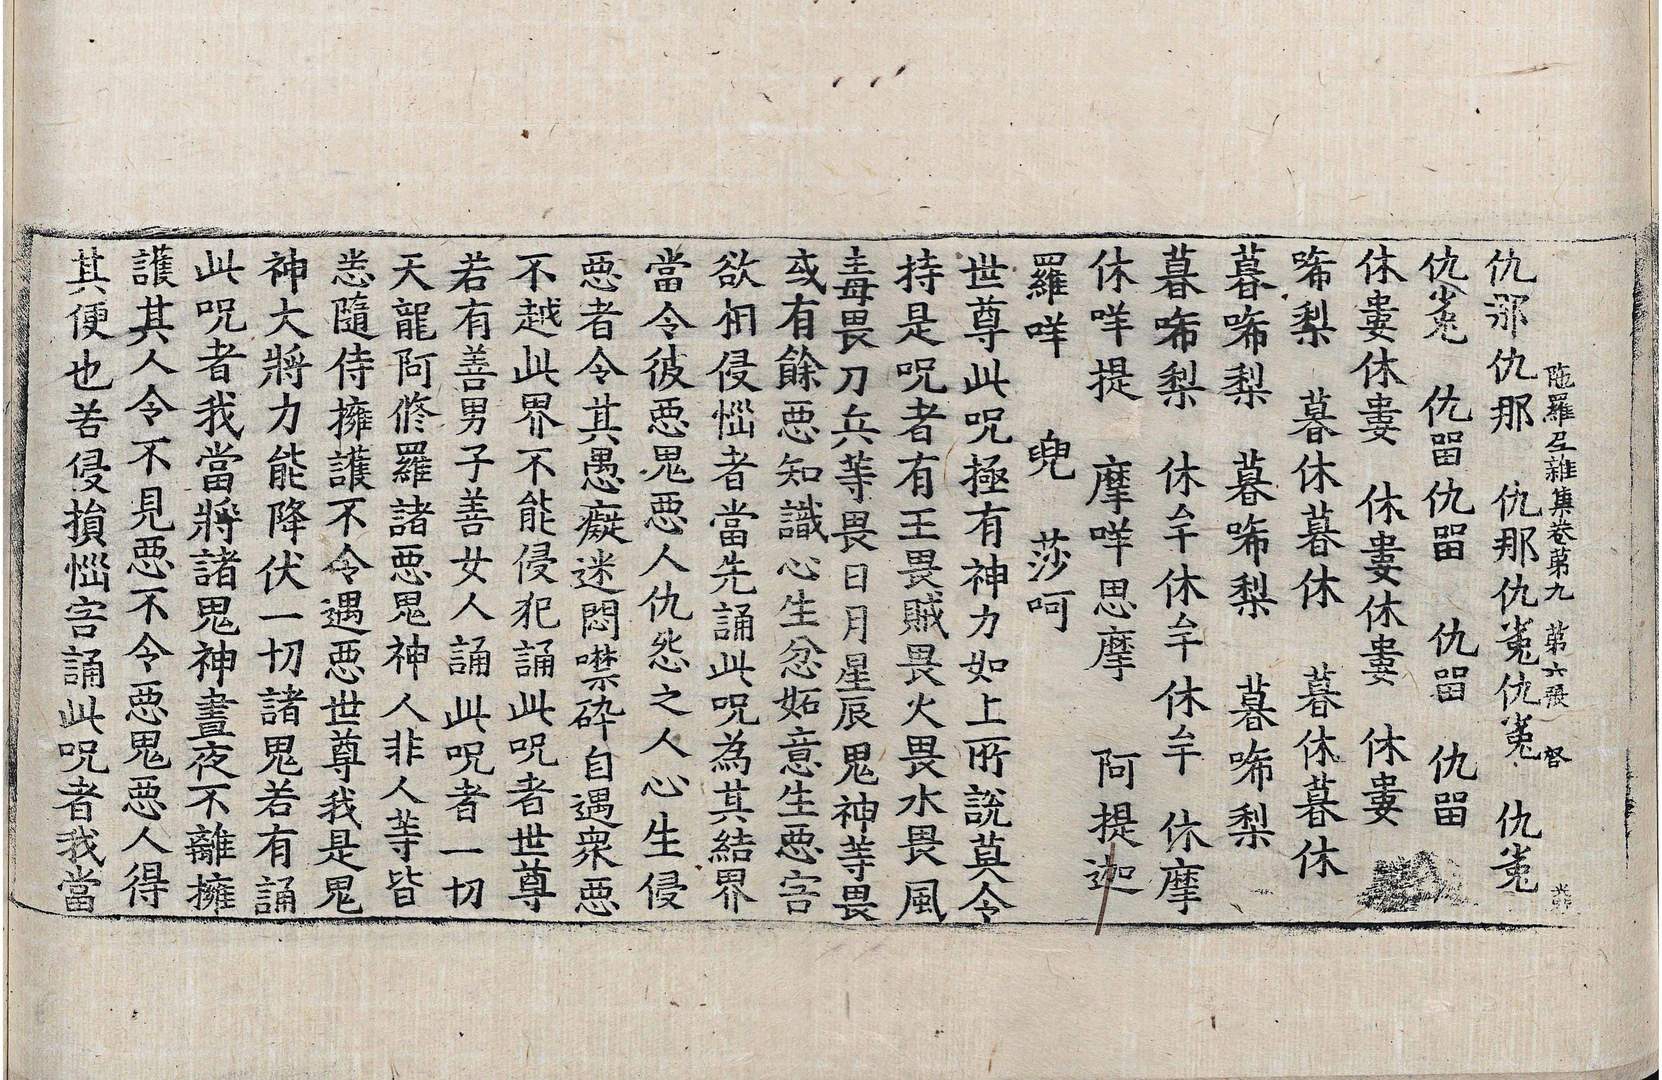 陁羅尼雜集卷第九　第六張　督
仇那仇那　仇那仇㝹仇㝹　仇㝹
仇㝹　仇留仇留　仇留　仇留
休婁休婁　休婁休婁　休婁
唏梨　暮休暮休　暮休暮休
暮唏梨　暮唏梨　暮唏梨
暮唏梨　休牟休牟休牟　休摩
休咩提　摩咩思摩　阿提迦
羅咩　兜　莎呵
世尊此呪極有神力如上所說莫令
持是呪者有王畏賊畏火畏水畏風
毒畏刀兵等畏日月星辰鬼神等畏
或有餘惡知識心生忿妬意生惡害
欲相侵惱者當先誦此呪為其結界
當令彼惡鬼惡人仇怨之人心生侵
惡者令其愚癡迷悶噤碎自遇衆惡
不越此界不能侵犯誦此呪者世尊
若有善男子善女人誦此呪者一切
天龍阿脩羅諸惡鬼神人非人等皆
悉隨侍擁護不令遇惡世尊我是鬼
神大將力能降伏一切諸鬼若有誦
此呪者我當將諸鬼神晝夜不離擁
護其人令不見惡不令惡鬼惡人得
其便也若侵損惱害誦此呪者我當